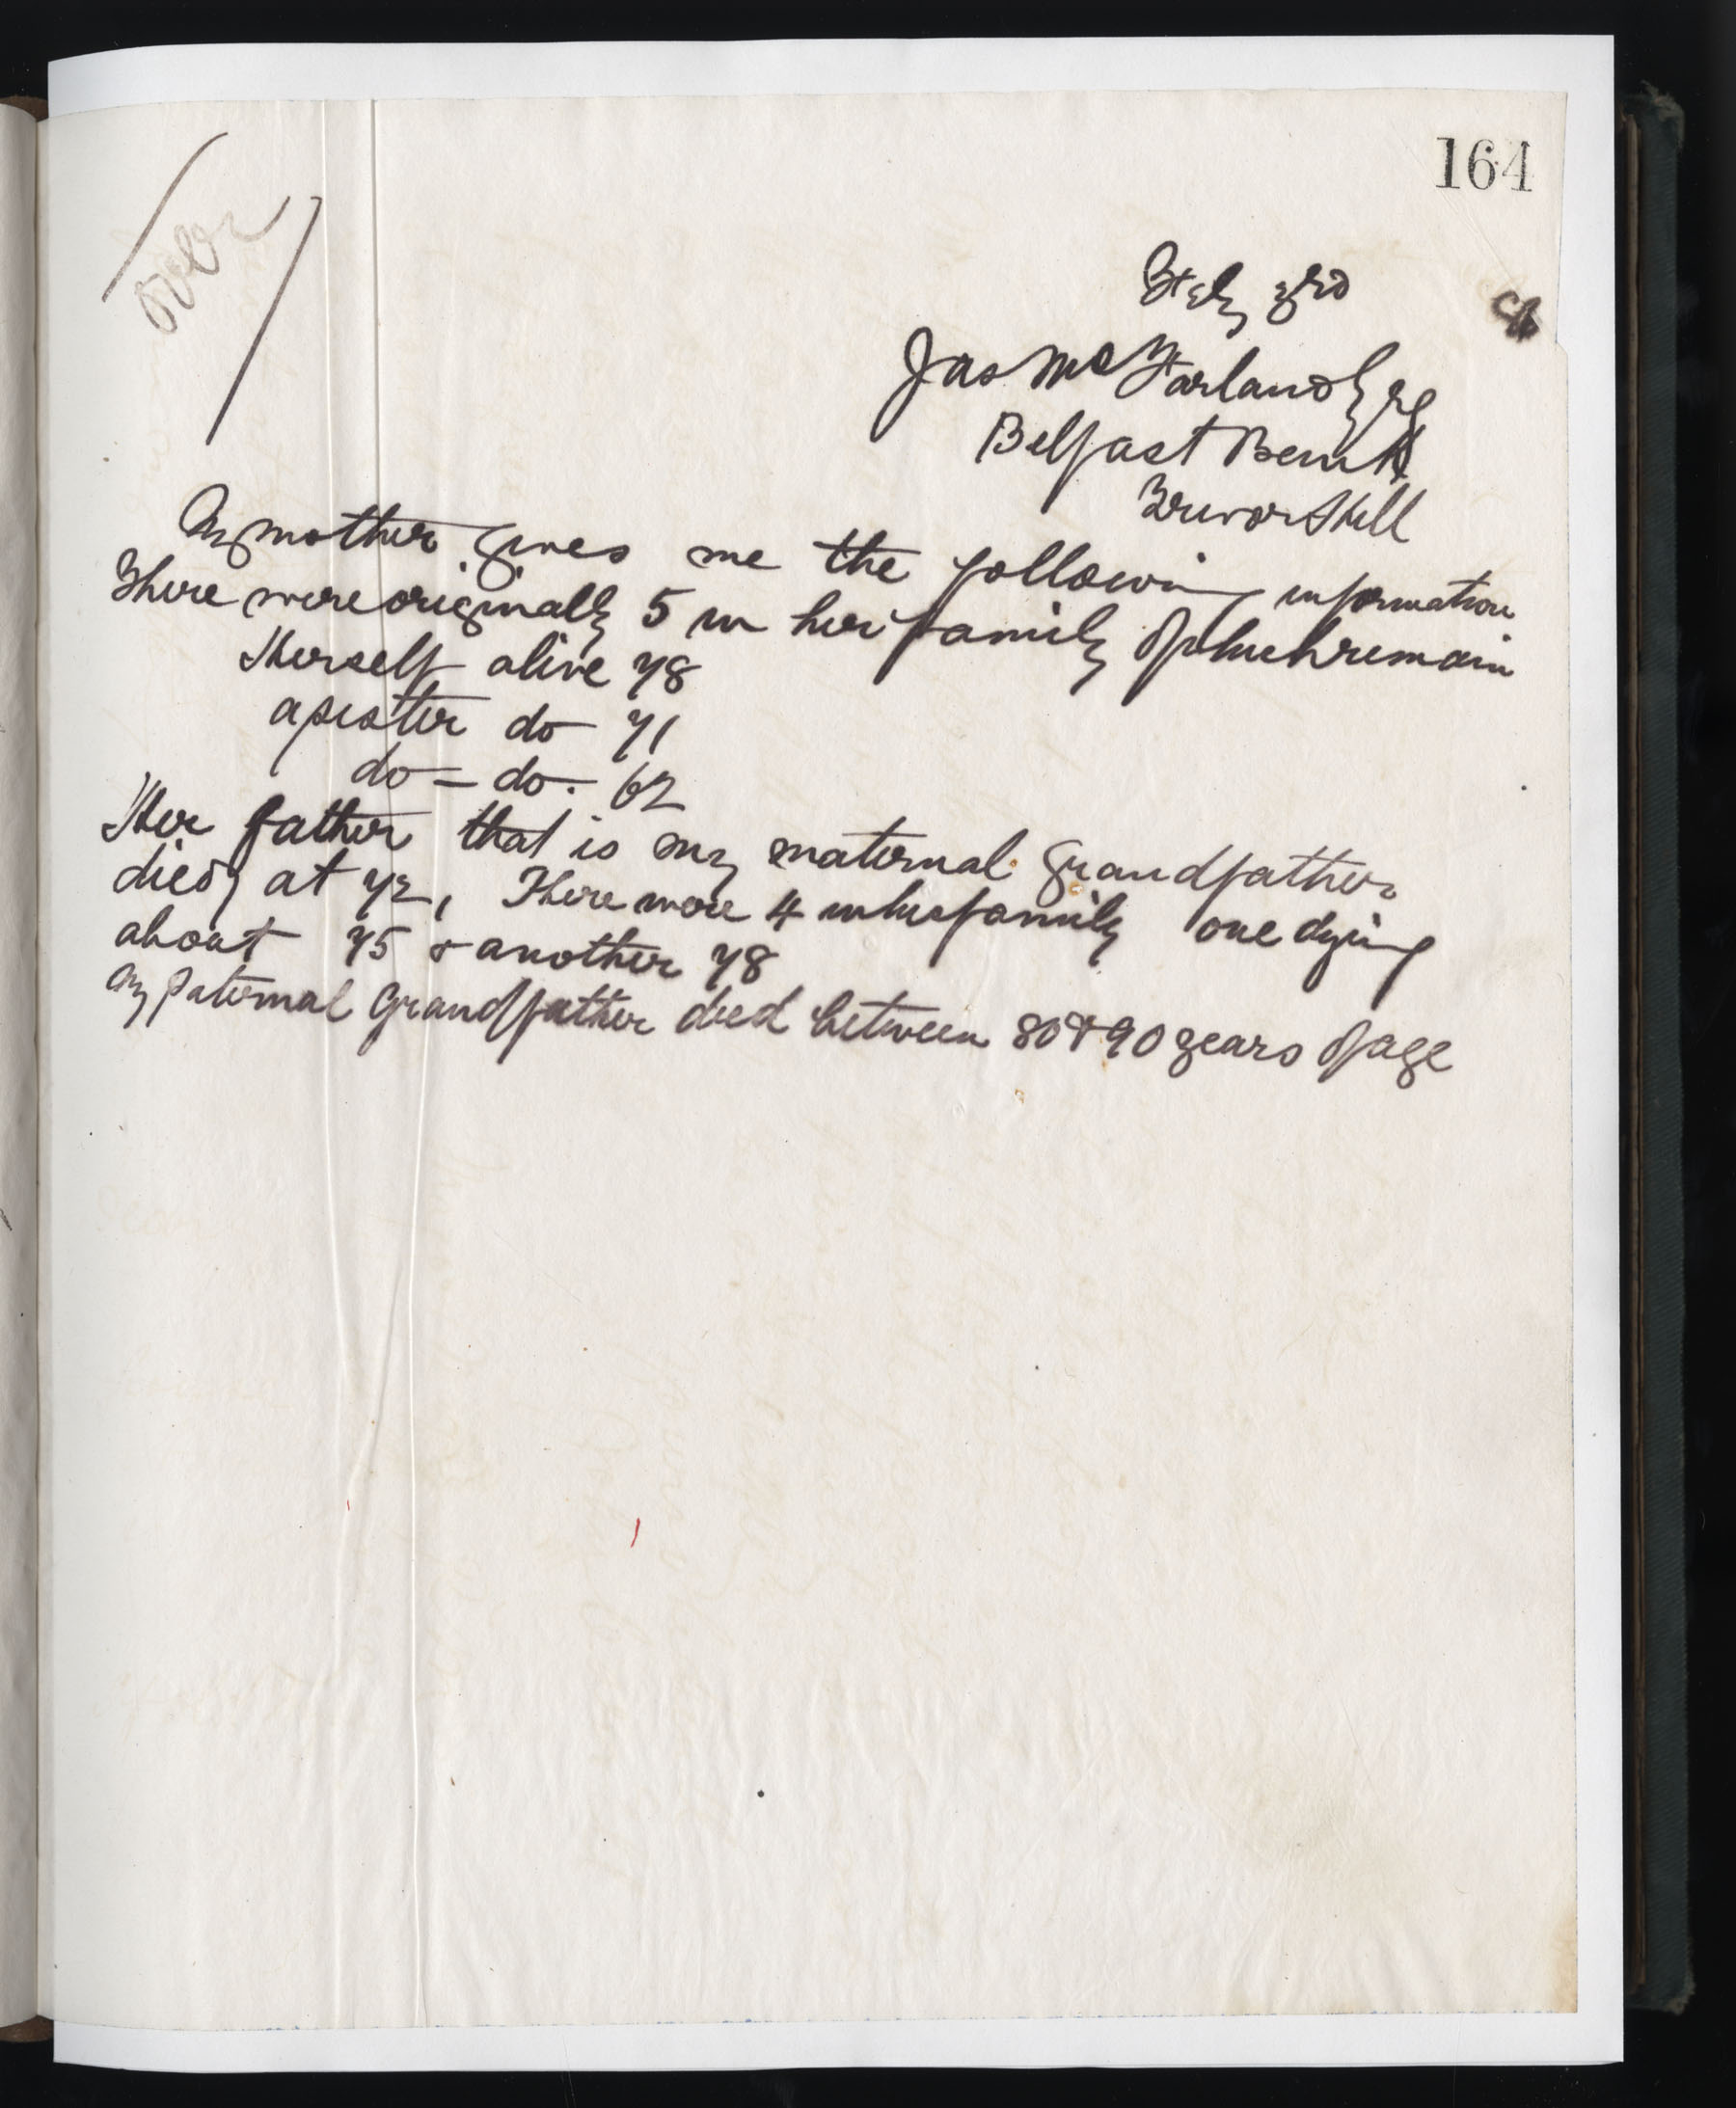 164
over
Jas McFarland Esq
Belfast Bank
My mother gives me the following information
There were originally 5 in her family of which remain
Herself alive 78
a sister do 71
do - do - 62
Her father that is my maternal grandfather
died at 72, There were 4 in his family one dying
about 75 & another 78
My paternal Grandfather died between 80 & 90 years of age